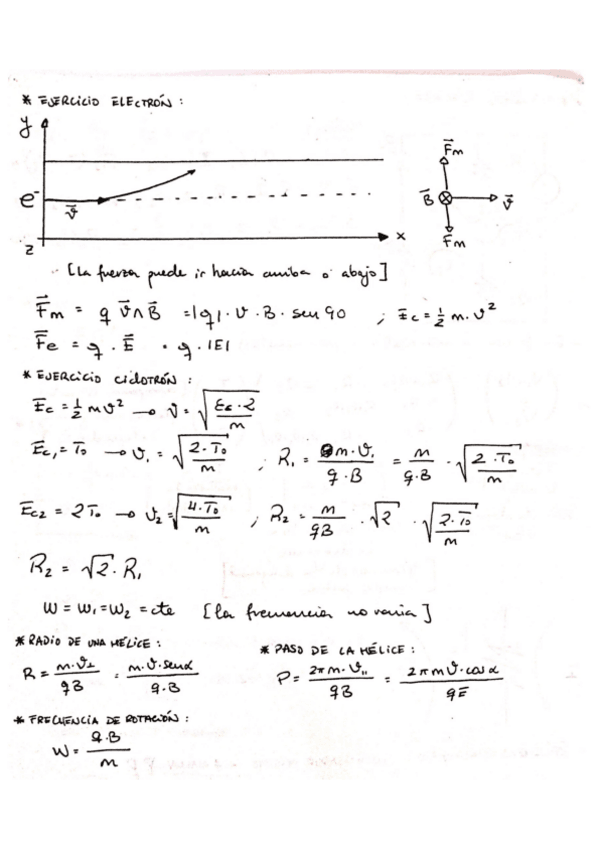 * EJERCICIO ELECTRÓN :
y
e⁻
v⃗
z
x
F⃗m
B⃗ ⊗ v⃗
F⃗m
[La fuerza puede ir hacia arriba o abajo]
F⃗m = q v⃗ ∧ B⃗ = |q| · v · B · sen 90 ; Ec = 1/2 m · v²
F⃗e = q · E⃗ · q · |E|
* EJERCICIO CICLOTRÓN :
Ec = 1/2 m v² → v = √(Ec · 2 / m)
Ec₁ = T₀ → v₁ = √(2 · T₀ / m) ; R₁ = m · v₁ / q · B = m / q · B · √(2 · T₀ / m)
Ec2 = 2T₀ → v₂ = √(4 · T₀ / m) ; R₂ = m / qB · √2 · √(2 · T₀ / m)
R₂ = √2 · R₁
W = W₁ = W₂ = cte [la frecuencia no varía]
* RADIO DE UNA HÉLICE :
R = m · v⊥ / qB = m · v · senα / q · B
* PASO DE LA HÉLICE :
P = 2π m · v₁₁ / qB = 2π m v · cos α / qE
* FRECUENCIA DE ROTACIÓN :
W = q · B / m